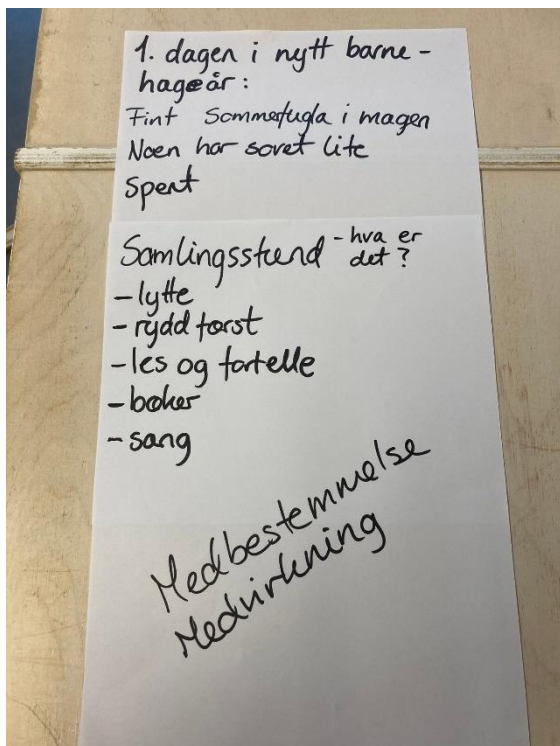 1. dagen i nytt barne-
hageår:
Fint Sommerfugla i magen
Noen har sovet lite
Spent
Samlingsstund - hva er
det?
- lytte
- rydd først
- les og fortelle
- bøker
- sang
Medbestemmelse
Medvirkning